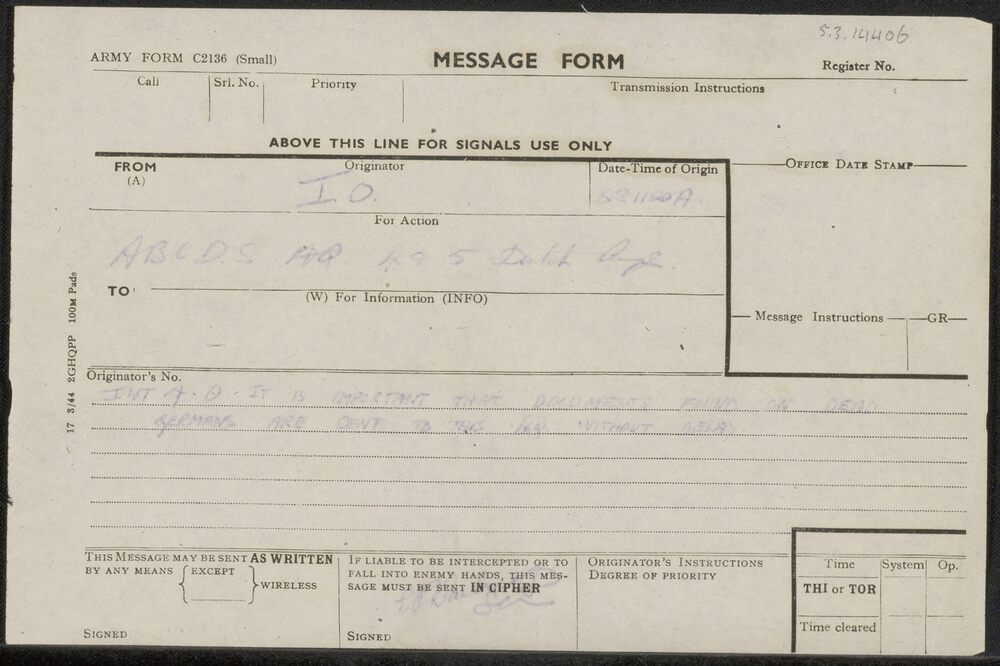 5.3.14406
ARMY FORM C2136 (Small)
MESSAGE FORM
Register No.
Call
Srl. No.
Priority
Transmission Instructions
ABOVE THIS LINE FOR SIGNALS USE ONLY
FROM
(A)
Originator
I.O.
Date-Time of Origin
OFFICE DATE STAMP
For Action
ABCD.S HQ. 4 2 5 Dutch
TO
(W) For Information (INFO)
Message Instructions
GR
17 3/44 2GHQPP 100M Pads
Originator's No.
INT 4. O. IT IS IMPORTANT THAT DOCUMENTS FOUND ON DEAD
GERMANS ARE SENT TO THIS H.Q. WITHOUT DELAY
THIS MESSAGE MAY BE SENT AS WRITTEN
BY ANY MEANS { EXCEPT
} WIRELESS
SIGNED
IF LIABLE TO BE INTERCEPTED OR TO
FALL INTO ENEMY HANDS, THIS MES-
SAGE MUST BE SENT IN CIPHER
SIGNED
ORIGINATOR'S INSTRUCTIONS
DEGREE OF PRIORITY
Time
System
Op.
THI or TOR
Time cleared